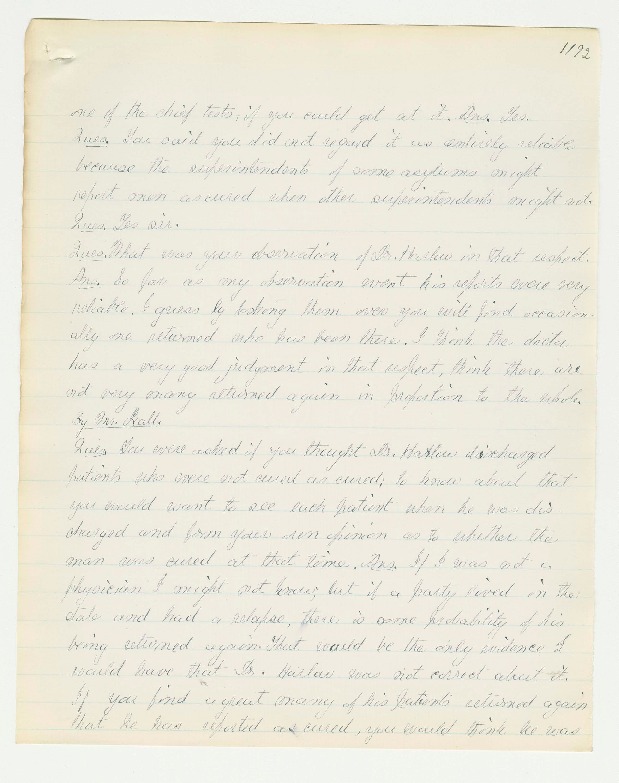 1192
one of the chief tests, if you could get at it. Ans. Yes.
Ques. You said you did not regard it as entirely reliable
because the superintendents of some asylums might
report men as cured when other superintendents might not.
Ques. Yes sir.
Ques. What was your observation of Dr. Harlow in that respect.
Ans. So far as my observation went his reports were very
reliable. I guess by looking them over you will find occasion-
ally one returned who has been there. I think the doctor
has a very good judgment in that respect, think there are
not very many returned again in proportion to the whole.
by Mr. Hall.
Ques. You were asked if you thought Dr. Harlow discharged
patients who were not cured as cured; to know about that
you would want to see each patient when he was dis
charged and form your own opinion as to whether the
man was cured at that time. Ans. If I was not a
physician I might not know; but if a party lived in the
State and had a relapse, there is some probability of his
being returned again. That would be the only evidence I
would have that Dr. Harlow was not correct about it.
If you find a great many of his patients returned again
that he has reported as cured, you would think he was